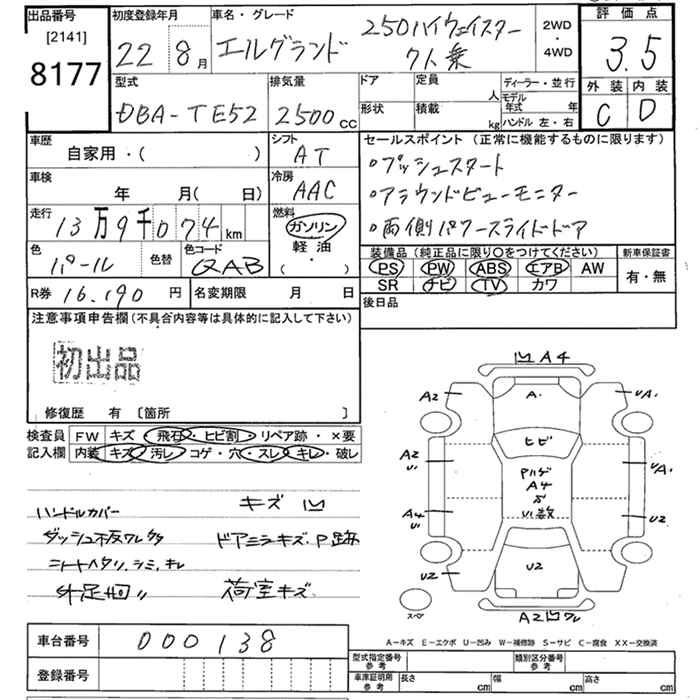 出品番号 [2141] 8177
初度登録年月 22 8月
車名・グレード エルグランド 250ハイウェイスター 7人乗
2WD・4WD
評価点 3.5
外装 C 内装 D
型式 DBA-TE52
排気量 2500CC
ドア 形状
定員 人 積載 kg
ディーラー・並行
モデル年式 年
ハンドル 左・右
車歴 自家用・( )
シフト AT
車検 年 月( 日)
冷房 AAC
走行 13万9千074km
燃料 ガソリン 軽油 (・)
色 パール 色替 色コード QAB
R券 16.190円 名変期限 月 日
セールスポイント (正常に機能するものに限ります)
・プッシュスタート
・アラウンドビューモニター
・両側パワースライドドア
装備品 (純正品に限り○をつけてください)
PS PW ABS エアB AW
SR ナビ TV カワ
新車保証書 有・無
後日品
注意事項申告欄 (不具合内容等は具体的に記入して下さい)
初出品
修復歴 有 [箇所 ]
検査員記入欄 FW キズ・飛石・ヒビ割・リペア跡・×要
内装 キズ・汚レ・コゲ・穴・スレ・キレ・破レ
ハンドルカバー キズ 凹
ダッシュ板ワレ多 ドアミラキズ、P跡
シートヘタリ、シミ、キレ
荷室キズ
凹 A4
A2 A・ UA1
ヒビ
A2 U1 Pハゲ A4 UA1
A4 U1 U1数 U2
U2 U2
スペア
A2凹ワレ
A-キズ E-エクボ U-凹み W-補修跡 S-サビ C-腐食 XX-交換済
車台番号 000138
登録番号
型式指定番号 参考 類別区分番号 参考
車庫証明用 参考 長さ cm 幅 cm 高さ cm